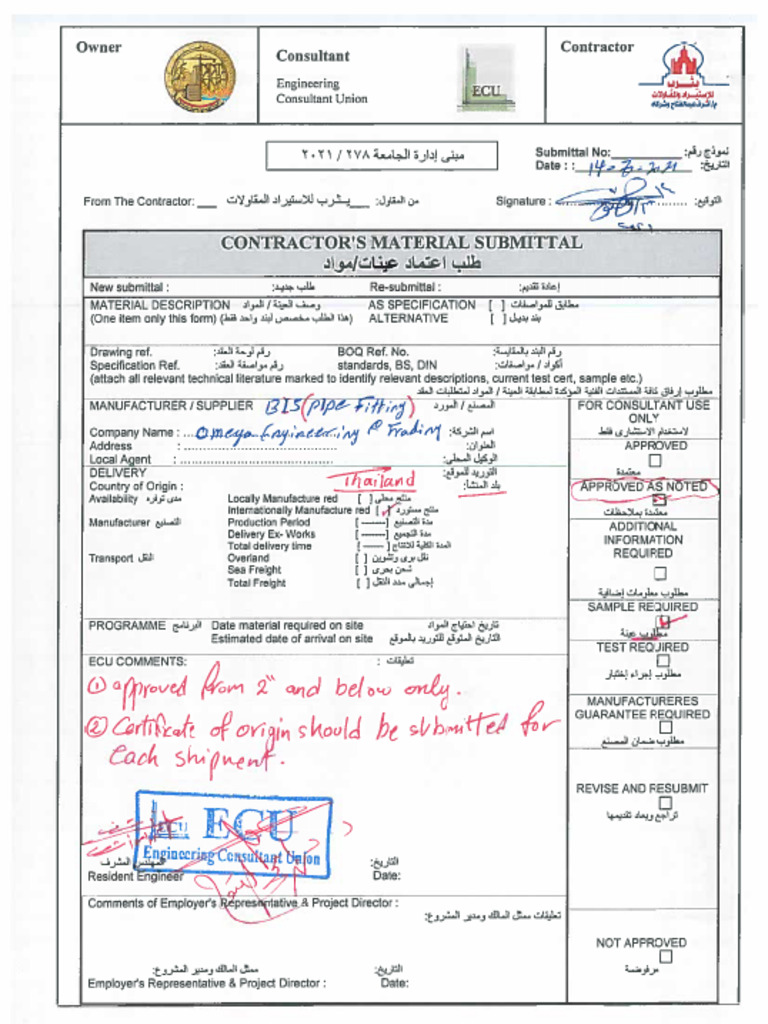 Owner
Consultant
Engineering
Consultant Union
ECU
Contractor
يثرب
للإستيراد والمقاولات
م/أشرف عبدالفتاح وشركاه
مبنى إدارة الجامعة ٢٧٨ / ٢٠٢١
Submittal No: نموذج رقم:
Date : : التاريخ:
From The Contractor: يثرب للاستيراد المقاولات من المقاول:
Signature : التوقيع:
CONTRACTOR'S MATERIAL SUBMITTAL
طلب اعتماد عينات/مواد
New submittal : طلب جديد: Re-submittal : إعادة تقديم:
MATERIAL DESCRIPTION وصف العينة / المواد AS SPECIFICATION [ ] مطابق للمواصفات
(One item only this form) (هذا الطلب مخصص لبند واحد فقط) ALTERNATIVE [ ] بند بديل
Drawing ref. رقم لوحة العقد: BOQ Ref. No. رقم البند بالمقايسة:
Specification Ref. رقم مواصفة العقد: standards, BS, DIN أكواد / مواصفات:
(attach all relevant technical literature marked to identify relevant descriptions, current test cert, sample etc.)
مطلوب إرفاق كافة المستندات الفنية المؤكدة لمطابقة العينة / المواد لمتطلبات العقد
MANUFACTURER / SUPPLIER BIS (Pipe Fitting) المصنع / المورد
Company Name : Omega Engineering & Trading اسم الشركة:
Address : العنوان:
Local Agent : الوكيل المحلى:
DELIVERY Thailand التوريد للموقع:
Country of Origin : بلد المنشأ:
Availability مدى توفره Locally Manufacture red [ ] منتج محلى
Internationally Manufacture red [✓] منتج مستورد
Manufacturer التصنيع Production Period [-------] مدة التصنيع
Delivery Ex- Works [-------] مدة التجميع
Total delivery time [------] المدة الكلية للانتاج
Transport النقل Overland [ ] نقل برى
Sea Freight [ ] شحن بحرى
Total Freight [ ] إجمالي مدد النقل
PROGRAMME البرنامج Date material required on site تاريخ احتياج المواد
Estimated date of arrival on site التاريخ المتوقع للتوريد بالموقع
ECU COMMENTS: تعليقات :
① approved from 2" and below only.
② Certificate of origin should be submitted for
each shipment.
ECU
ECU
Engineering Consultant Union
المهندس المشرف التاريخ:
Resident Engineer Date:
Comments of Employer's Representative & Project Director :
تعليقات ممثل المالك ومدير المشروع:
ممثل المالك ومدير المشروع: التاريخ:
Employer's Representative & Project Director : Date:
FOR CONSULTANT USE
ONLY
لاستخدام الاستشارى فقط
APPROVED
معتمدة
APPROVED AS NOTED
معتمدة بملاحظات
ADDITIONAL
INFORMATION
REQUIRED
مطلوب معلومات إضافية
SAMPLE REQUIRED
مطلوب عينة
TEST REQUIRED
مطلوب إجراء إختبار
MANUFACTURERES
GUARANTEE REQUIRED
مطلوب ضمان المصنع
REVISE AND RESUBMIT
تراجع ويعاد تقديمها
NOT APPROVED
مرفوضة